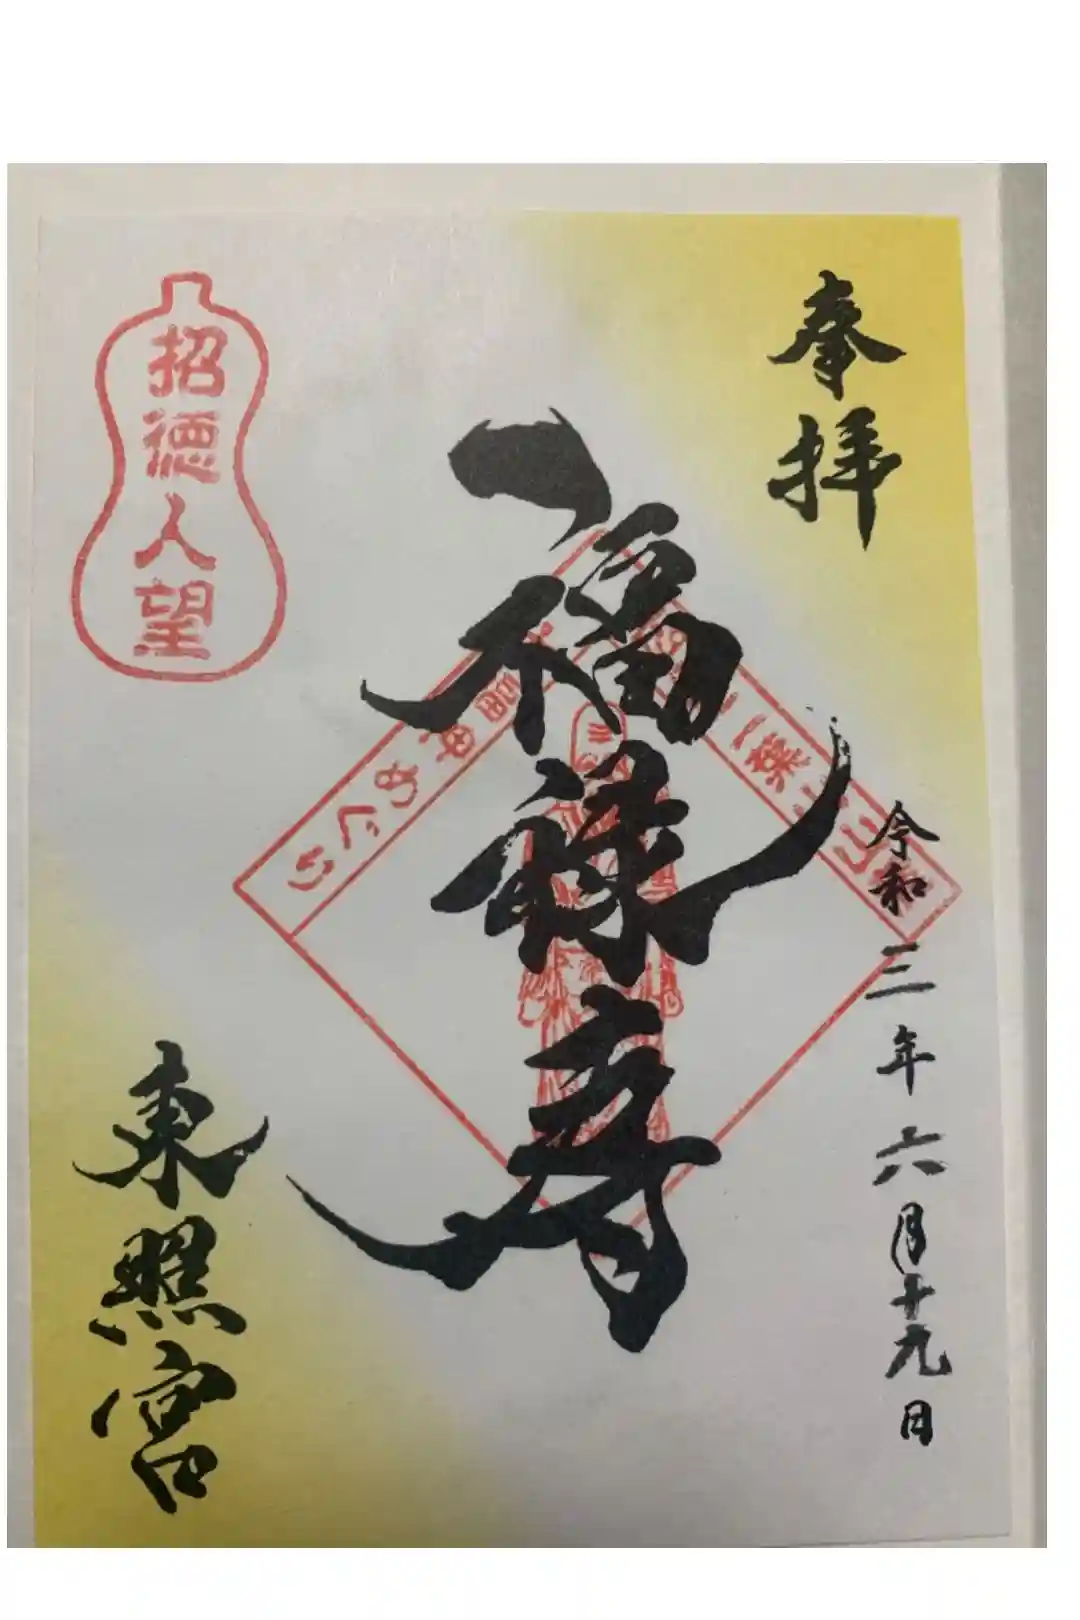 奉拝
令和三年六月十九日
福禄寿
めぐり
招徳人望
東照宮